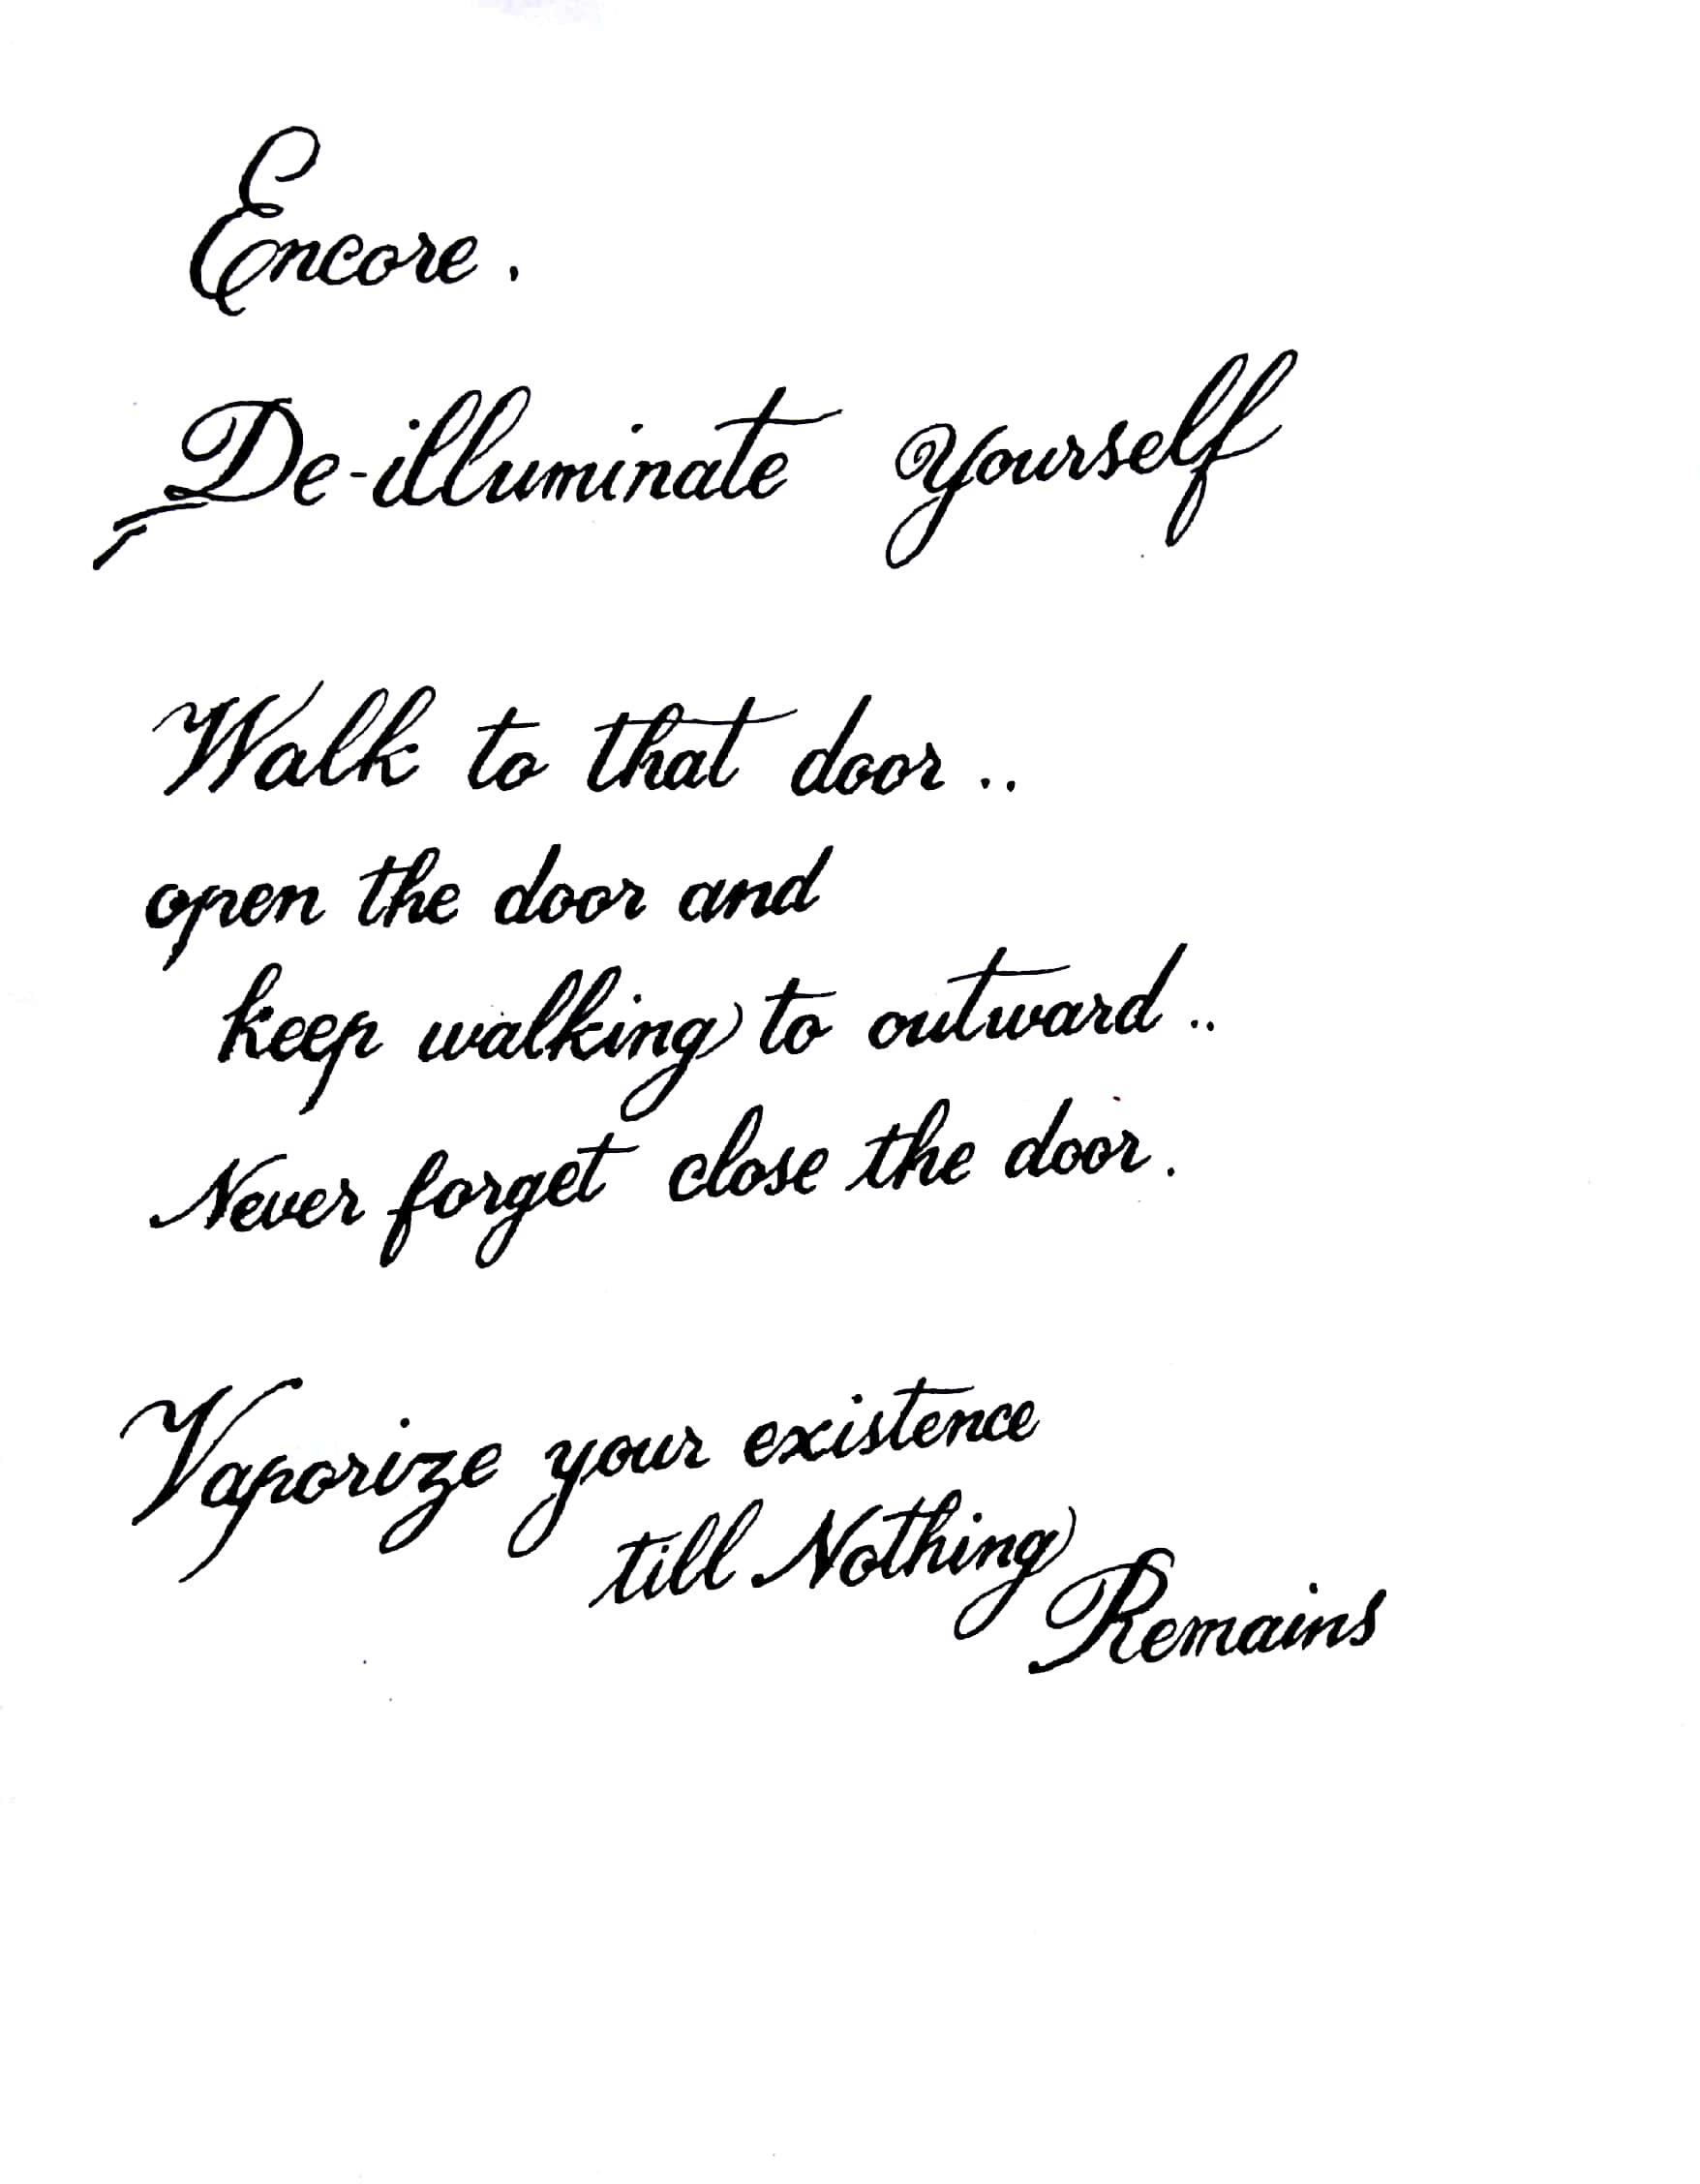 Encore.
De-illuminate Yourself
Walk to that door..
open the door and
keep walking to outward..
Never forget close the door.
Vaporize your existence
till Nothing
Remains